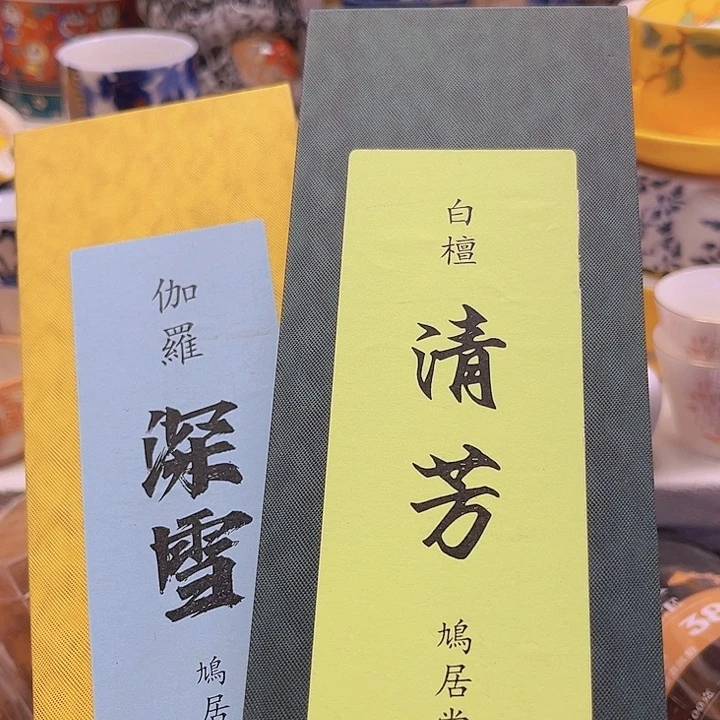 白檀
清芳
鳩居堂
伽羅
深雪
鳩居
38